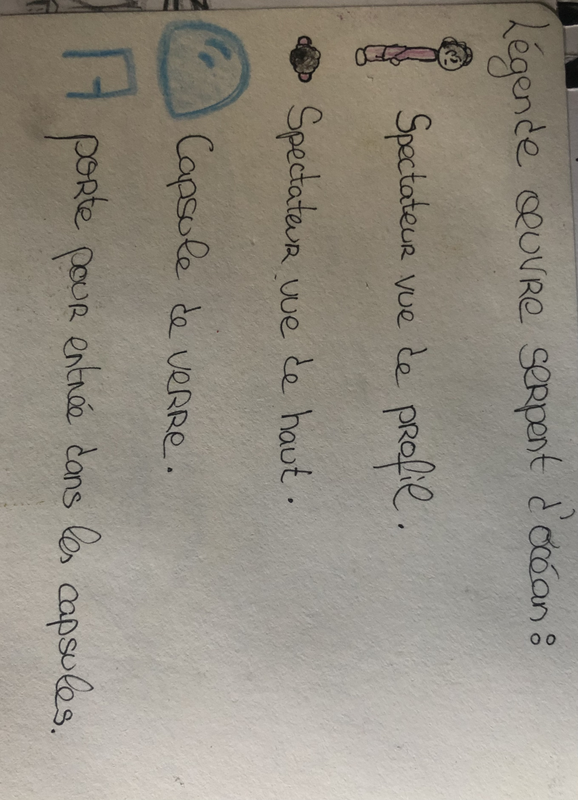 Légende œuvre serpent d'océan :
Spectateur vue de profil.
Spectateur vue de haut.
Capsule de verre.
porte pour entrée dans les capsules.